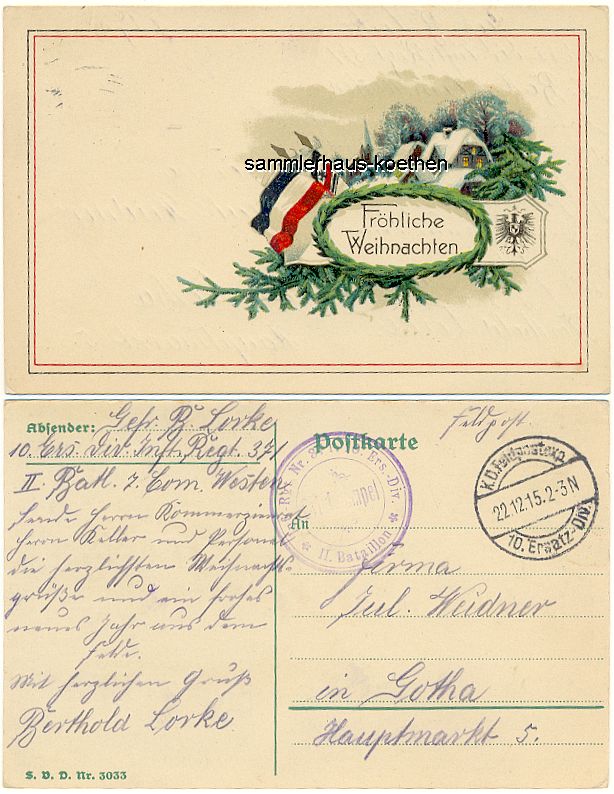 sammlerhaus-koethen
Fröhliche
Weihnachten
Absender: Gefr. B. Lorke
10. Ers. Div. Inft. Regt. 371
II Batl. 7. Com. Westen
sende Herrn Kommerzienrat
Herrn Keller und Personal
die herzlichsten Weihnachts-
grüße und ein frohes
neues Jahr aus dem
Felde.
Mit herzlichen Gruß
Berthold Lorke.
S. V. D. Nr. 3033
Feldpost.
Postkarte
Nr. Ers.-Div.
* II. Bataillon *
K.D.Feldpostexp.
22.12.15.2-3N
10. Ersatz-Div.
An
Firma
Jul. Weidner
in Gotha
Hauptmarkt 5.